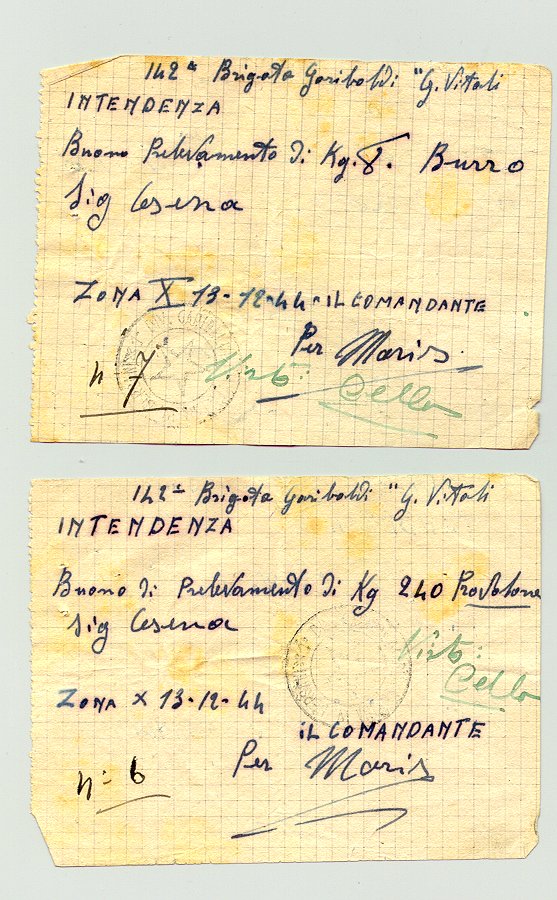 142ª Brigata Garibaldi "G. Vitali
INTENDENZA
Buono Prelevamento di Kg. 8. Burro
Sig Cesena
ZONA X 13-12-44 - IL COMANDANTE
Per Maris
n 7 Visto: Cello
142ª Brigata Garibaldi "G. Vitali
INTENDENZA
Buono di Prelevamento di Kg 240 Provolone
Sig Cesena
Visto:
Cello
ZONA X 13-12-44
IL COMANDANTE
Per Maris
n- 6